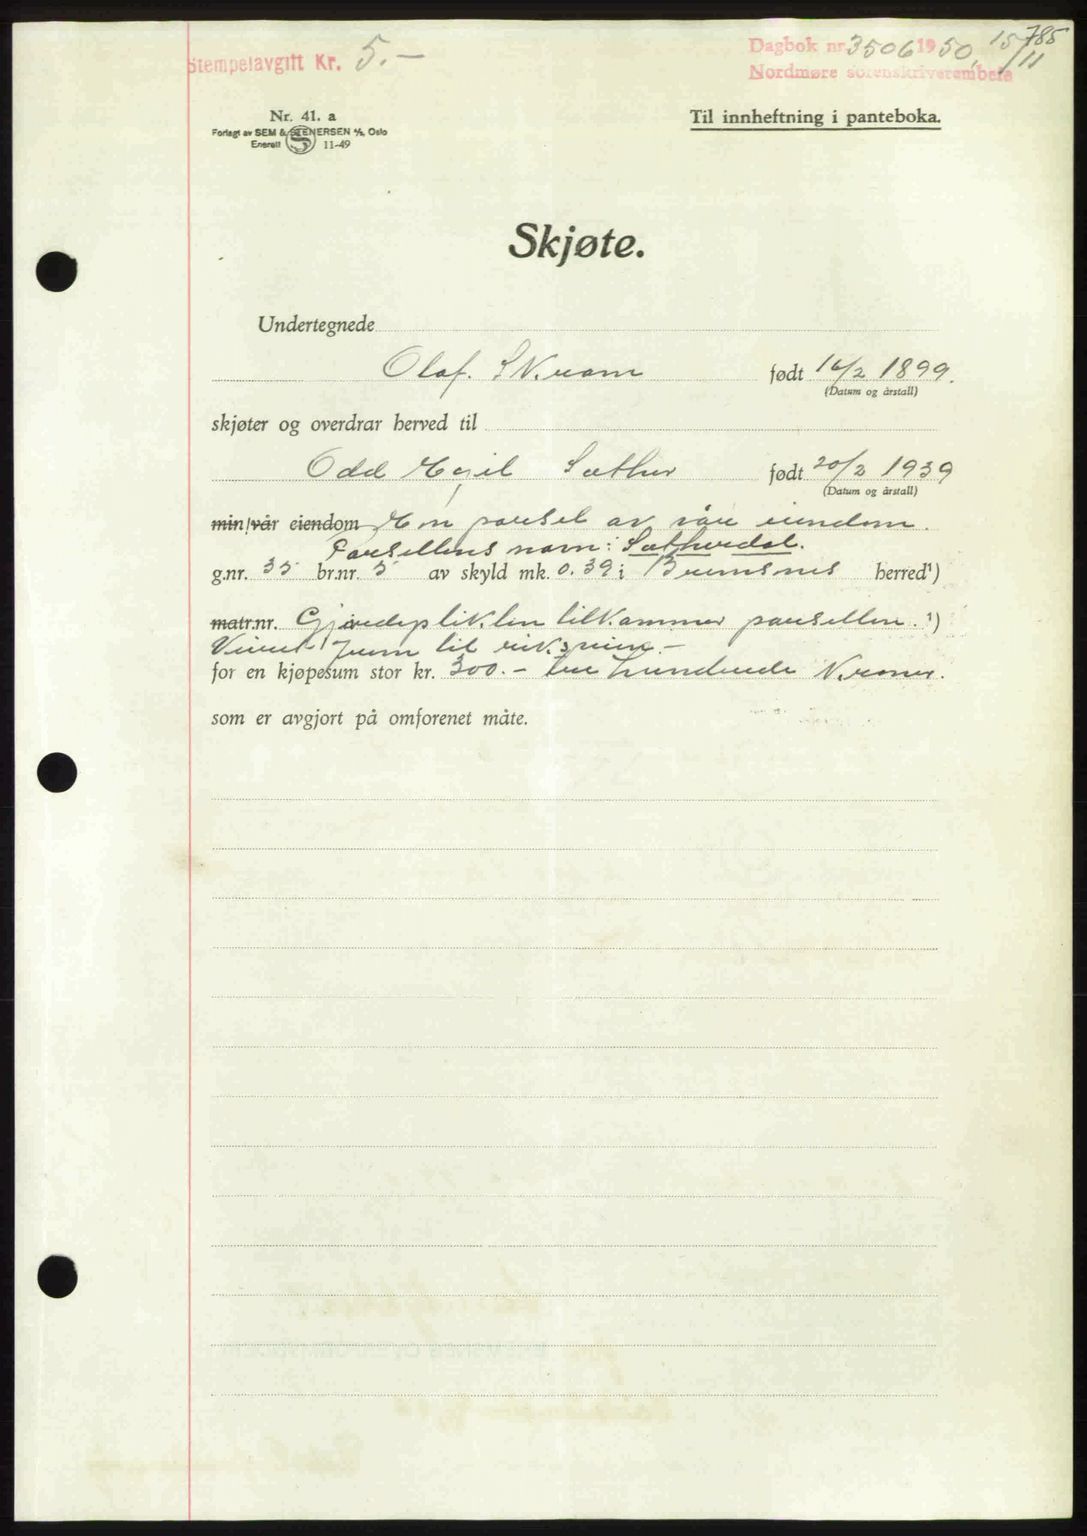 Stempelavgift Kr. 5.-
Dagbok nr. 3506 1950, 15/11
785
Nordmøre sorenskriverembete
Nr. 41. a
Forlagt av SEM & STENERSEN A/S, Oslo
Enerett 11-49
Til innheftning i panteboka.
Skjøte.
Undertegnede
Olaf. S Kram født 16/2 1899.
(Datum og årstall)
skjøter og overdrar herved til
Odd Egil Sæther født 20/2 1939
(Datum og årstall)
min/vår eiendom En parsel av våre eiendom.
Parsellens navn: Sætherdal.
g.nr. 35 br.nr. 5 av skyld mk. 0.39 i Bremsnes herred¹)
matr.nr. Gjerdeplikten tilkommer parsellen. ¹)
frem til riksveien. -
for en kjøpesum stor kr. 300.- tre hundrede Kroner.
som er avgjort på omforenet måte.